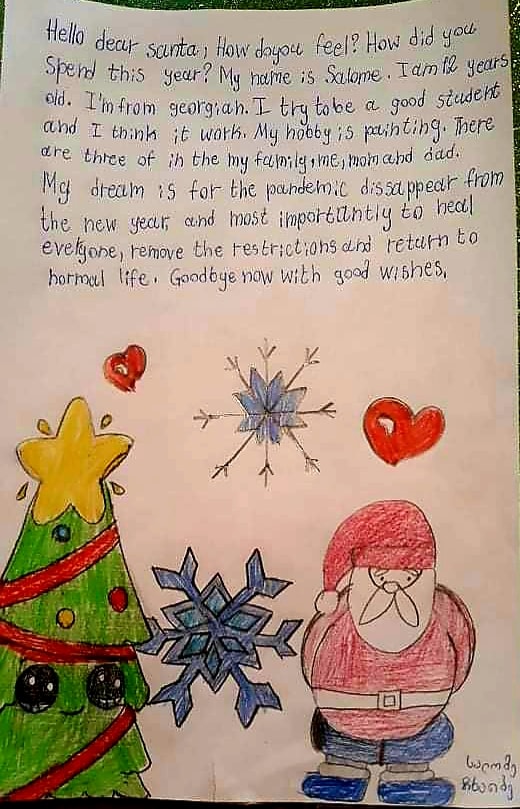 Hello dear santa, How doyou feel? How did you
spend this year? My name is Salome. I am 12 years
old. I'm from georgian. I try to be a good student
and I think it work. My hobby is painting. There
are three of in the my family, me, mom and dad.
My dream is for the pandemic dissappear from
the new year, and most importantly to heal
everyone, remove the restrictions and return to
normal life. Goodbye now with good wishes.
სალომე